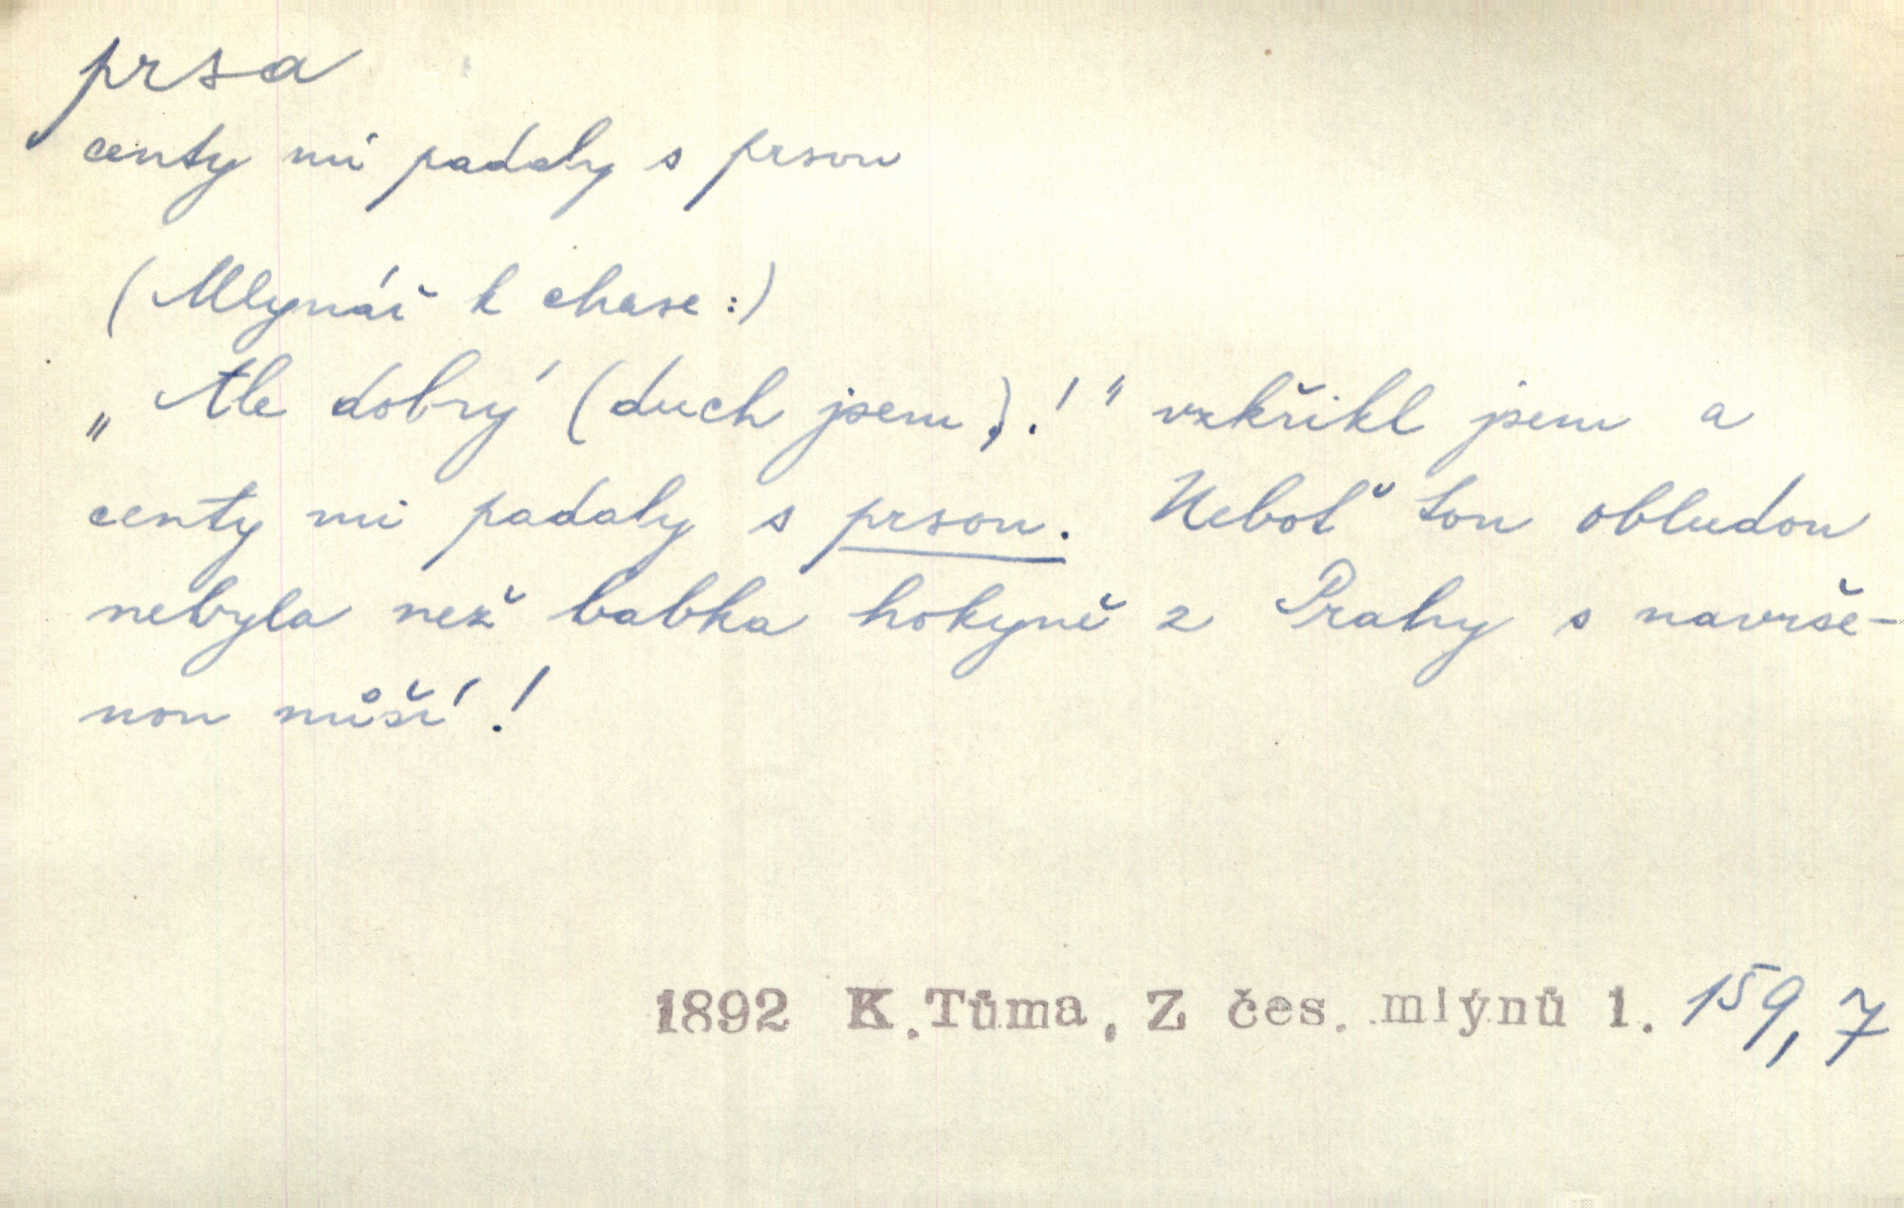 prsa
centy mi padaly s prsou
(Mlynář k chase:)
„Ale dobrý (duch jsem).!“ vzkřikl jsem a
centy mi padaly s prsou. Neboť tou obludou
nebyla než babka hokyně z Prahy s navrše-
nou nůší!
1892 K.Tůma, Z čes. mlýnů 1. 159,7